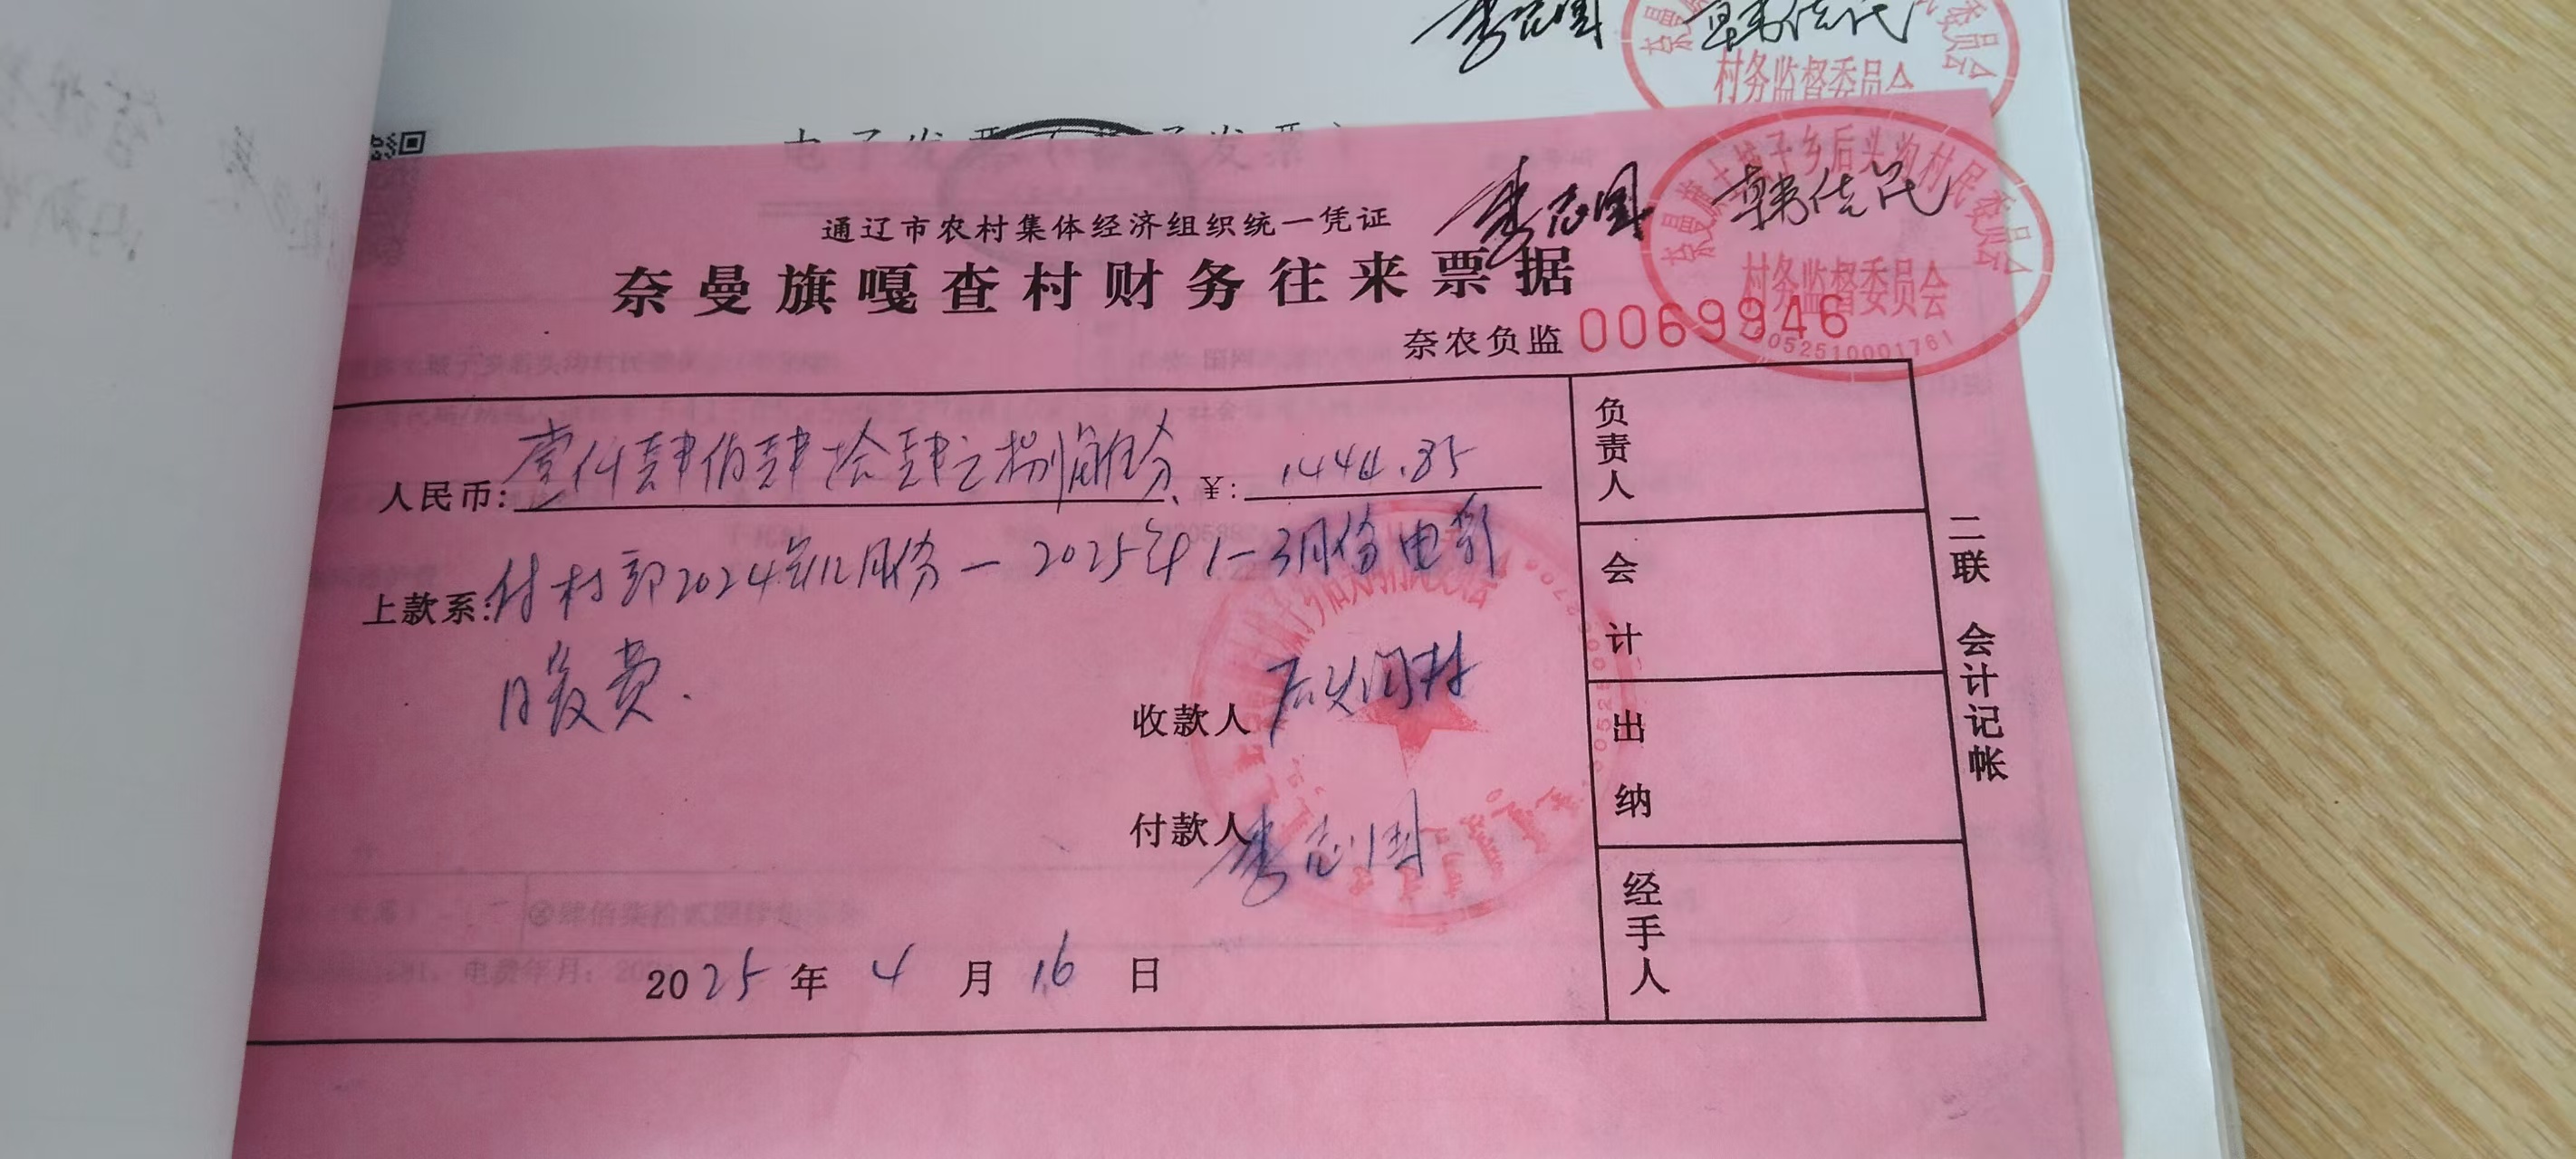 李志国 韩佐民
村务监督委员会
电子发票
奈曼旗土城子乡后头沟村民委员会
通辽市农村集体经济组织统一凭证
李志国 韩佐民
奈曼旗嘎查村财务往来票据
村务监督委员会
奈农负监 0069946
052510001761
人民币: 壹仟肆佰肆拾肆元捌角伍分 ¥: 1444.85
上款系: 付村部2024年12月份—2025年1-3月份电
暖费.
收款人 后头沟村
付款人 李志国
2025 年 4 月 16 日
负责人
会计
出纳
经手人
二联 会计记帐